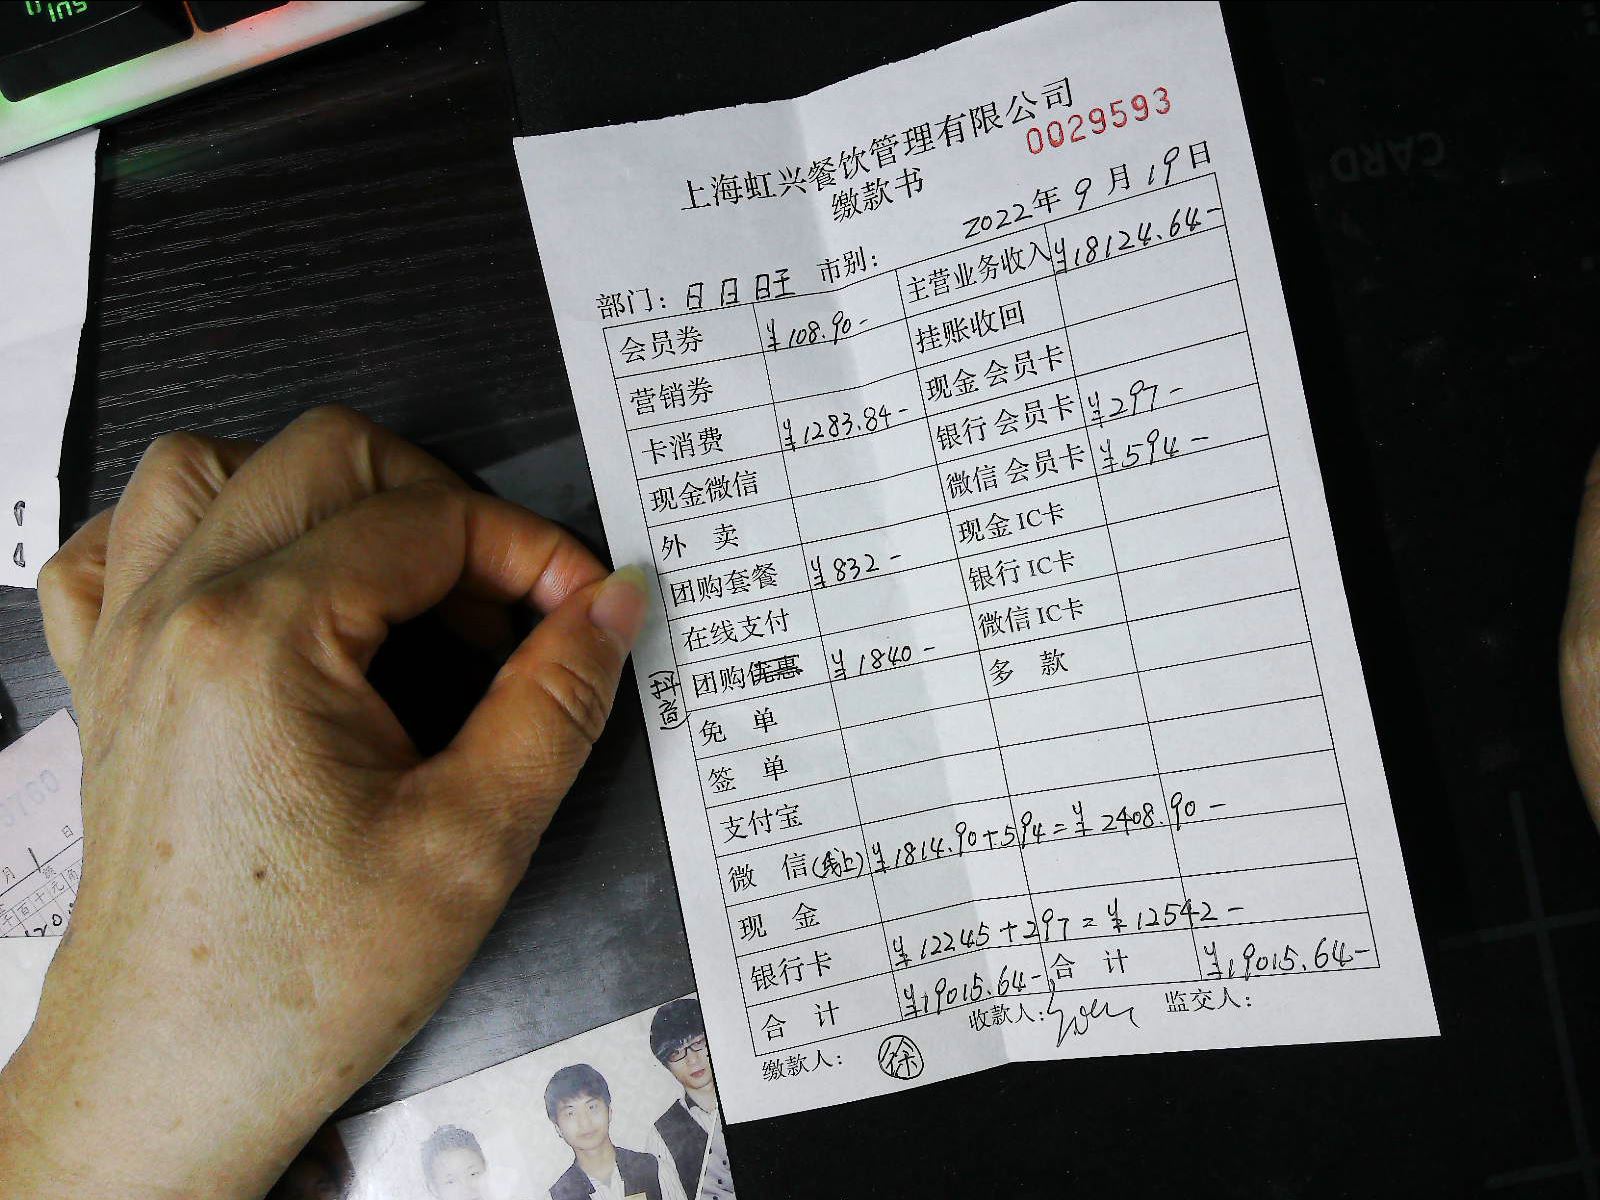 上海虹兴餐饮管理有限公司
0029593
缴款书
2022年 9 月 19日
部门：日日旺 市别：
会员券 ¥108.90- 主营业务收入 ¥18124.64-
营销券 挂账收回
卡消费 ¥1283.84- 现金 会员卡
现金微信 银行 会员卡 ¥297-
外 卖 微信 会员卡 ¥594-
团购套餐 ¥832- 现金 IC卡
在线支付 银行 IC卡
(抖音) 团购优惠 ¥1840- 微信 IC卡
免 单 多 款
签 单
支付宝
微 信(线上) ¥1814.90+594=¥2408.90-
现 金
银行卡 ¥12245+297=¥12542-
合 计 ¥19015.64- 合 计 ¥19015.64-
缴款人：徐 收款人： 监交人：
CARD
月 日
百 十 元 角